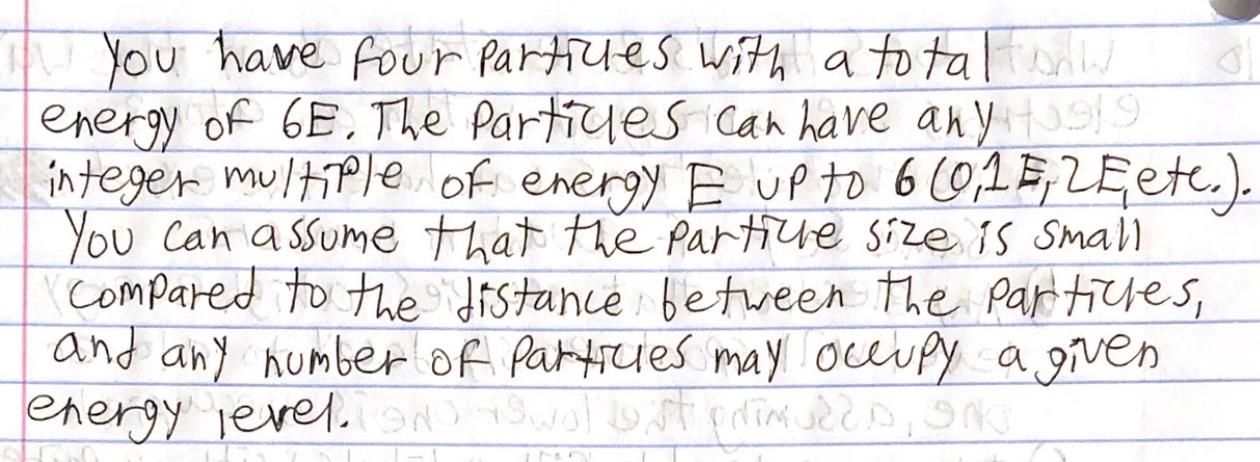 You have four particles with a total
energy of 6E. The particles can have any
integer multiple of energy E up to 6 (0,1E,2E,etc.).
You can assume that the particle size is small
compared to the distance between the particles,
and any number of particles may occupy a given
energy level.